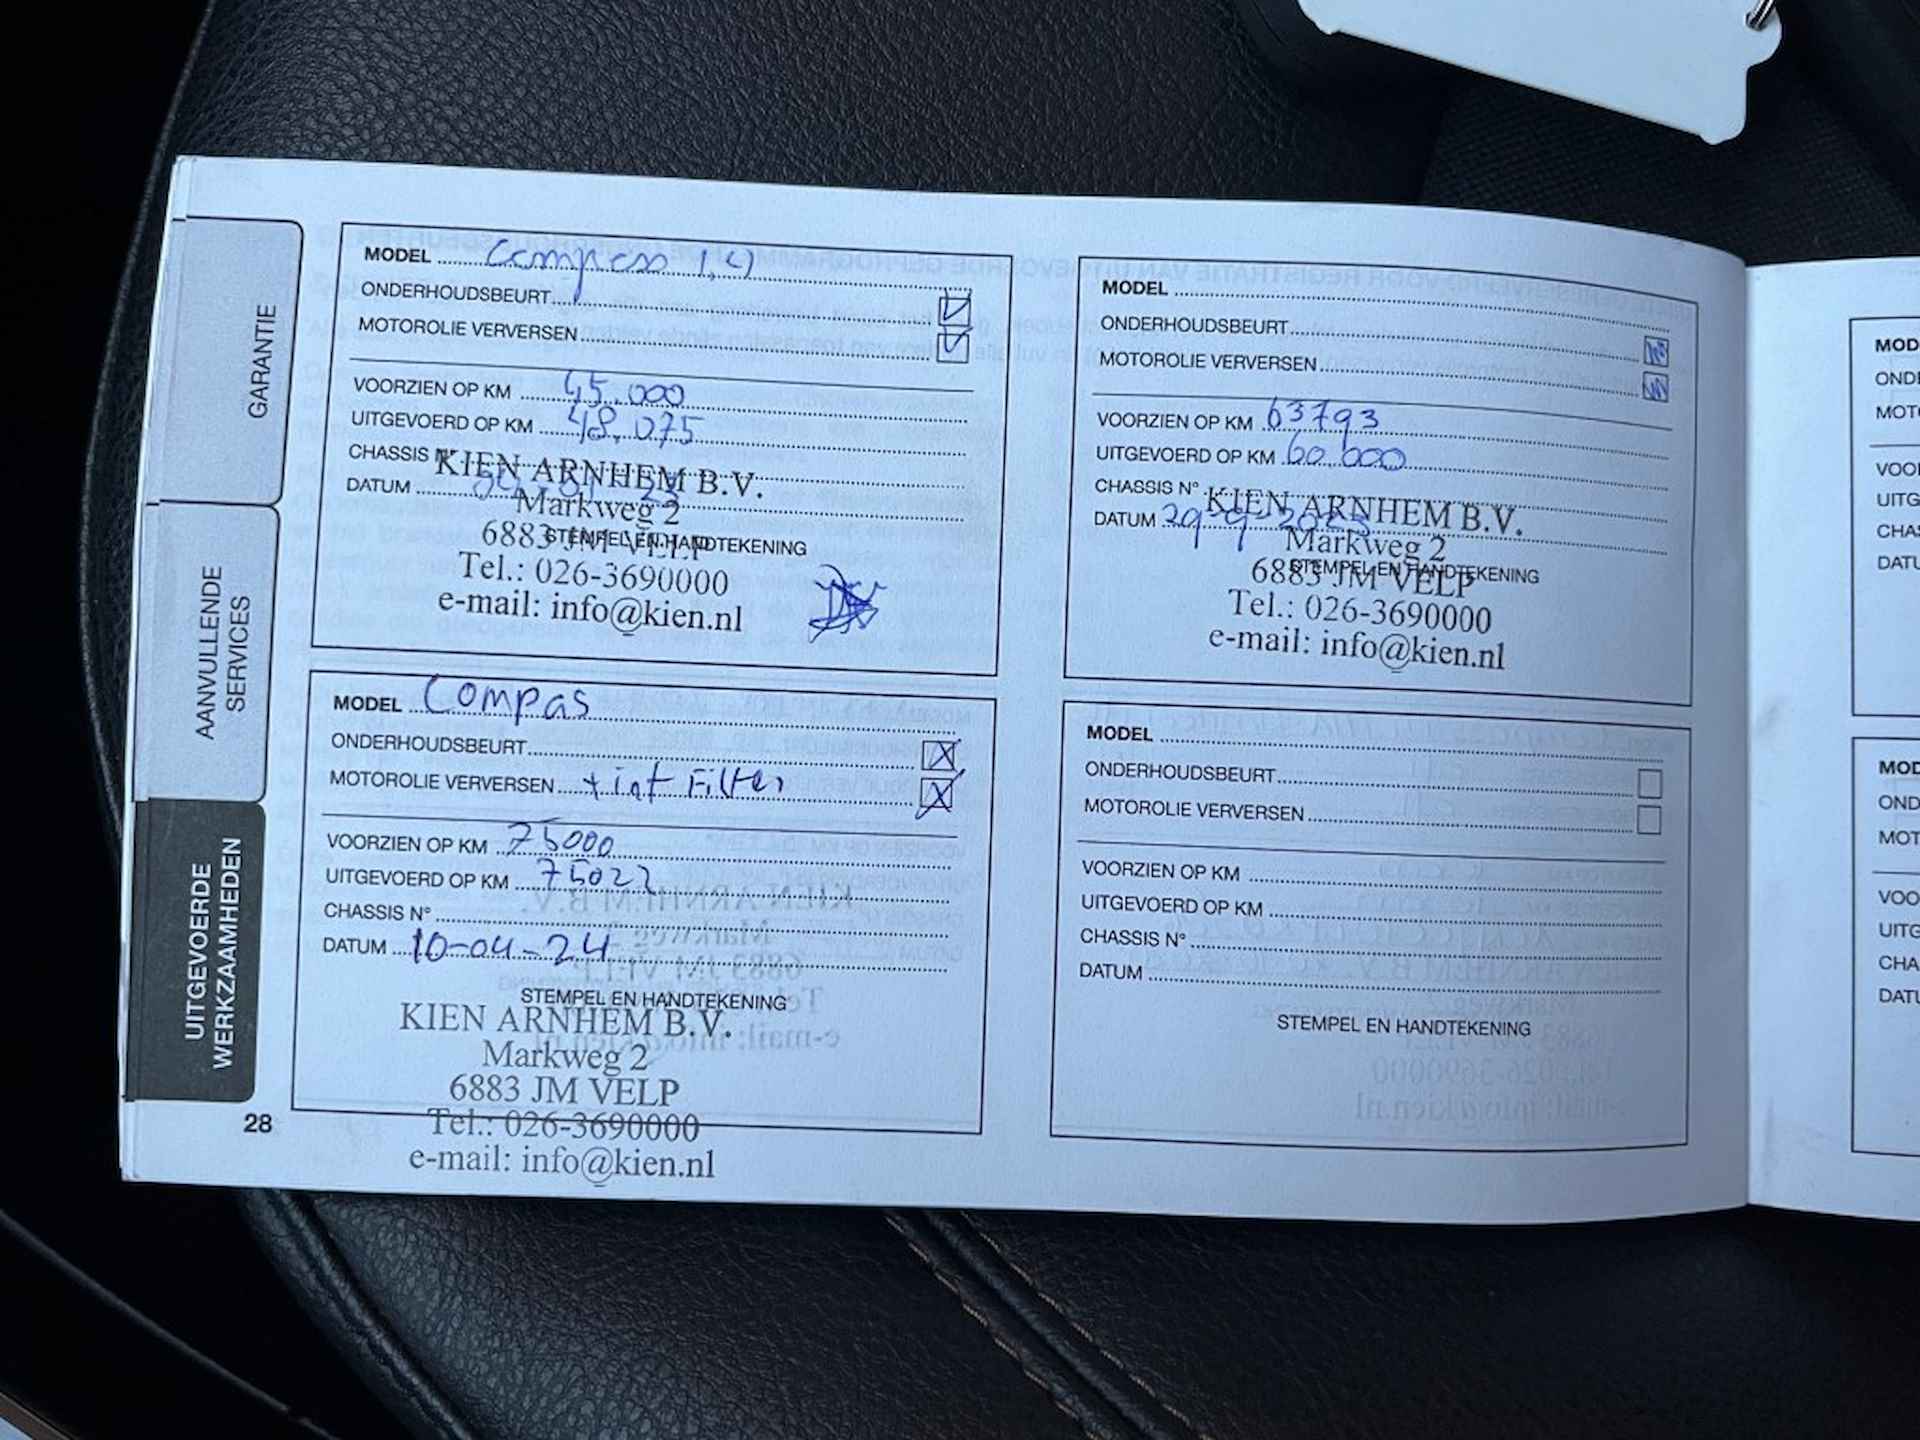 GARANTIE
AANVULLENDE
SERVICES
UITGEVOERDE
WERKZAAMHEDEN
28
MODEL Compass 1,4
ONDERHOUDSBEURT
MOTOROLIE VERVERSEN
VOORZIEN OP KM 45.000
UITGEVOERD OP KM 48.075
CHASSIS
KIEN ARNHEM B.V.
DATUM
Markweg 2
STEMPEL EN HANDTEKENING
6883 JM VELP
Tel.: 026-3690000
e-mail: info@kien.nl
MODEL
ONDERHOUDSBEURT
MOTOROLIE VERVERSEN
VOORZIEN OP KM 63793
UITGEVOERD OP KM 60.000
CHASSIS N°
KIEN ARNHEM B.V.
DATUM 29-9-2023
Markweg 2
STEMPEL EN HANDTEKENING
6883 JM VELP
Tel.: 026-3690000
e-mail: info@kien.nl
MODEL Compas
ONDERHOUDSBEURT
MOTOROLIE VERVERSEN + int Filter
VOORZIEN OP KM 75000
UITGEVOERD OP KM 75022
CHASSIS N°
DATUM 10-04-24
STEMPEL EN HANDTEKENING
KIEN ARNHEM B.V.
Markweg 2
6883 JM VELP
Tel.: 026-3690000
e-mail: info@kien.nl
MODEL
ONDERHOUDSBEURT
MOTOROLIE VERVERSEN
VOORZIEN OP KM
UITGEVOERD OP KM
CHASSIS N°
DATUM
STEMPEL EN HANDTEKENING
MOD
OND
MOT
VOO
UITG
CHA
DATU
MOD
OND
MOT
VOO
UITG
CHA
DATU